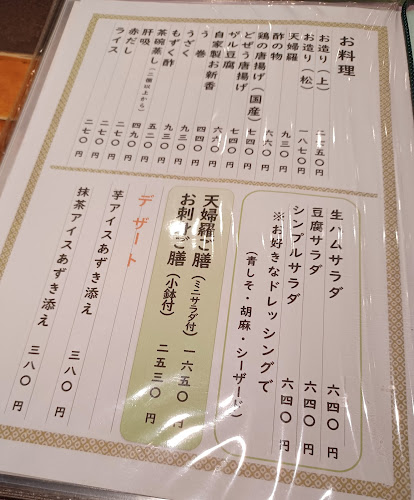 お料理
お造り（上） 二七五〇円
お造り（松） 一八七〇円
天婦羅 九三〇円
酢の物 六六〇円
鶏の唐揚げ（国産） 七四〇円
どぜう唐揚げ 七四〇円
ザル豆腐 六六〇円
自家製お新香 四四〇円
う巻 九三〇円
うざく 九三〇円
もずく酢 五二〇円
茶碗蒸し（二個以上から） 四九〇円
肝吸 二七〇円
赤だし 二七〇円
ライス 二七〇円
生ハムサラダ 六四〇円
豆腐サラダ 六四〇円
シンプルサラダ 六四〇円
※お好きなドレッシングで
（青しそ・胡麻・シーザード）
天婦羅ご膳（ミニサラダ付） 一六五〇円
お刺身ご膳（小鉢付） 二五三〇円
デザート
芋アイスあずき添え 三八〇円
抹茶アイスあずき添え 三八〇円